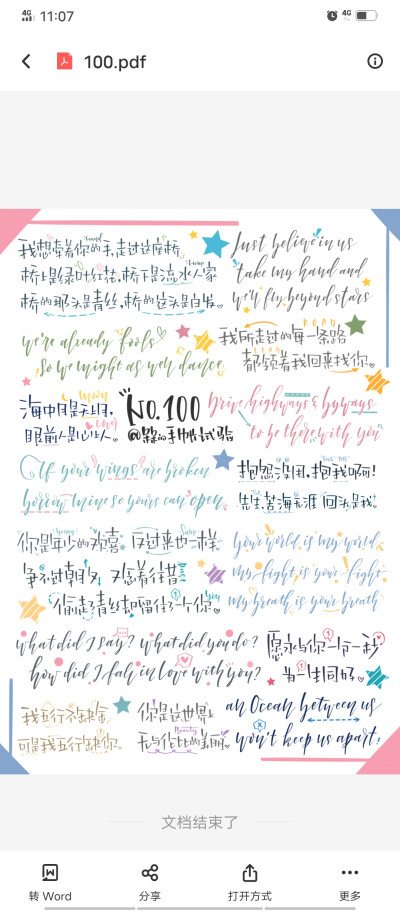 4G 11:07 4G
100.pdf
我想牵着你的手,走过这座桥,
桥上是绿叶红花,桥下是流水人家
桥的那头是青丝,桥的这头是白发。
Just believe in us
take my hand and
we'll fly beyond stars
we're already fools
so we might as well dance
我所走过的每一条路
ROAD
都领着我回来找你。
moon
海中月是天上月,
眼前人是心上人。
NO.100
Drive highways & byways
to be there with you
If your wings are broken
borrow mine so yours can open
抱怨没用,抱我啊!
先生苦海无涯 回头是我。
你是年少的欢喜 反过来也一样
争不过朝夕 又念着往昔
偷走了青丝却留住了一个你
your world is my world
my fight is your fight
my breath is your breath
what did I say? what did you do?
how did I fall in love with you?
愿永与你一分一秒
为一生同好。
我五行不缺金
可是我五行缺你。
你是这世界上
无与伦比的美丽
Beauty
an Ocean between us
won't keep us apart!
文档结束了
转 Word
分享
打开方式
更多